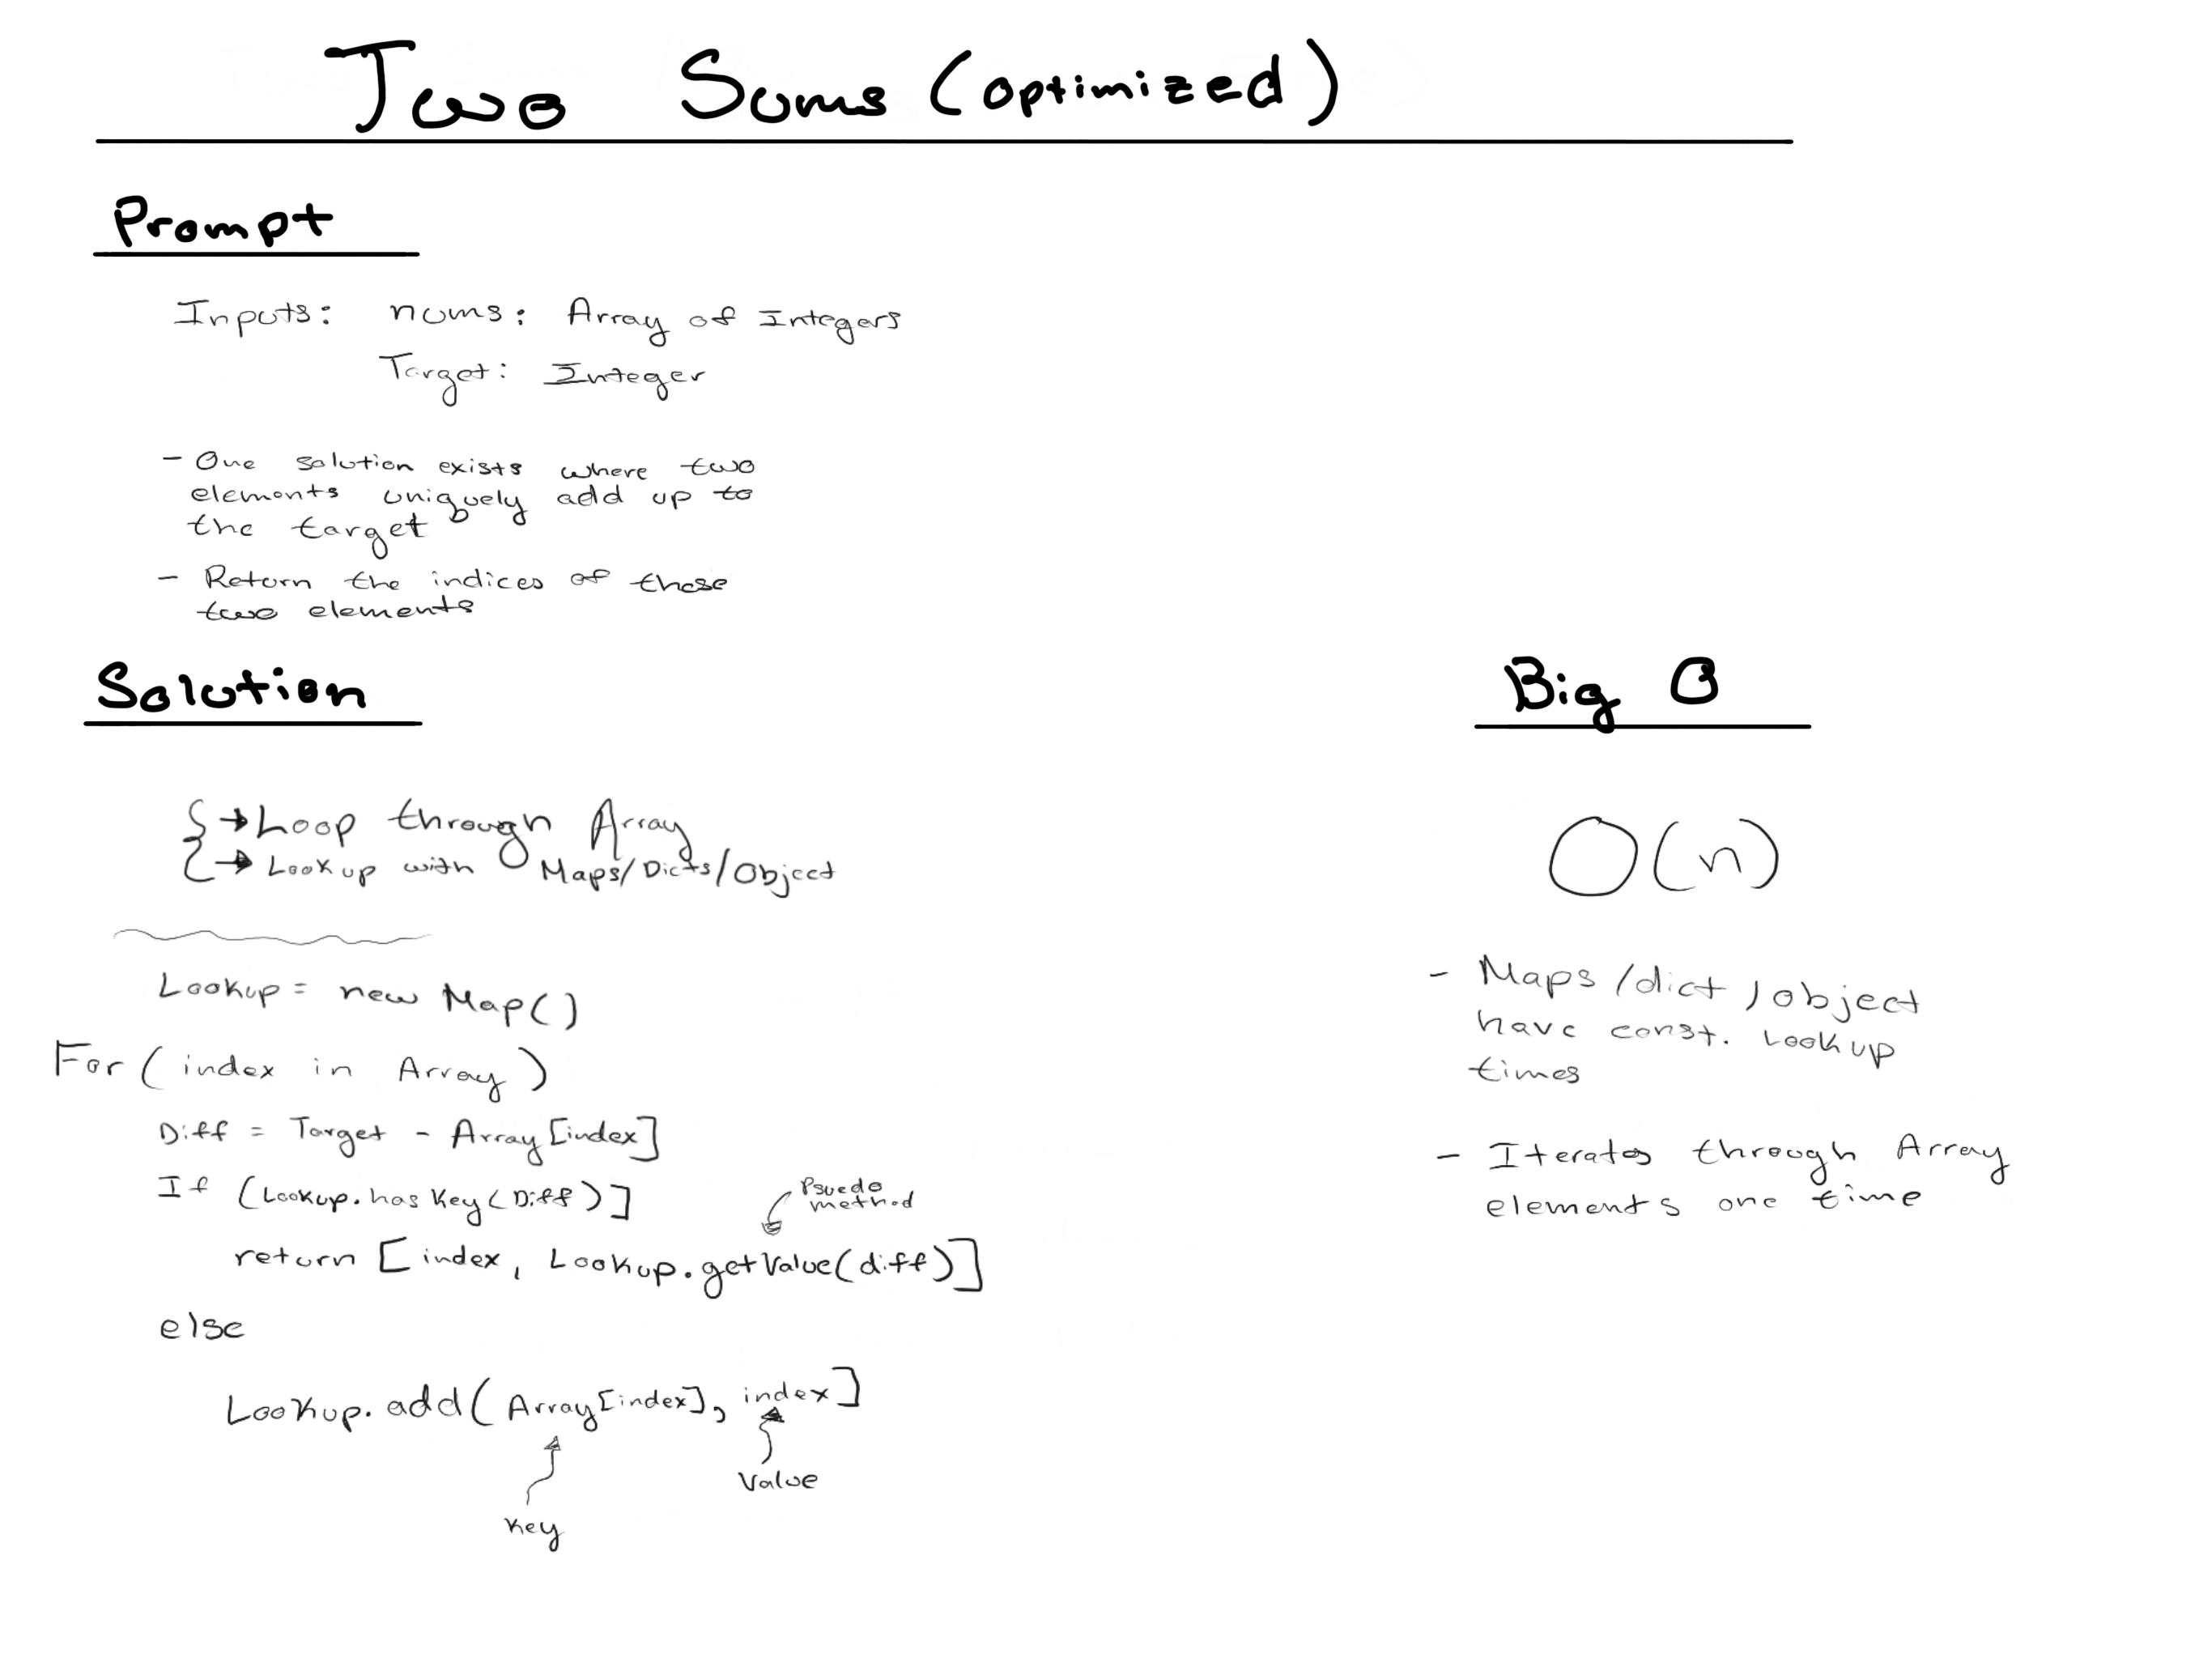 Two Sums (optimized)
Prompt
Inputs: nums: Array of Integers
Target: Integer
- One solution exists where two
elements uniquely add up to
the target
- Return the indices of these
two elements
Solution
{→ Loop through Array
→ Lookup with Maps/Dicts/Object
Lookup = new Map()
For ( index in Array )
Diff = Target - Array[index]
If (Lookup.hasKey(Diff)]
Psuedo
method
return [index, Lookup.getValue(diff)]
else
Lookup.add(Array[index], index]
Value
Key
Big O
O(n)
- Maps/dict/object
have const. Lookup
times
- Iterates through Array
elements one time